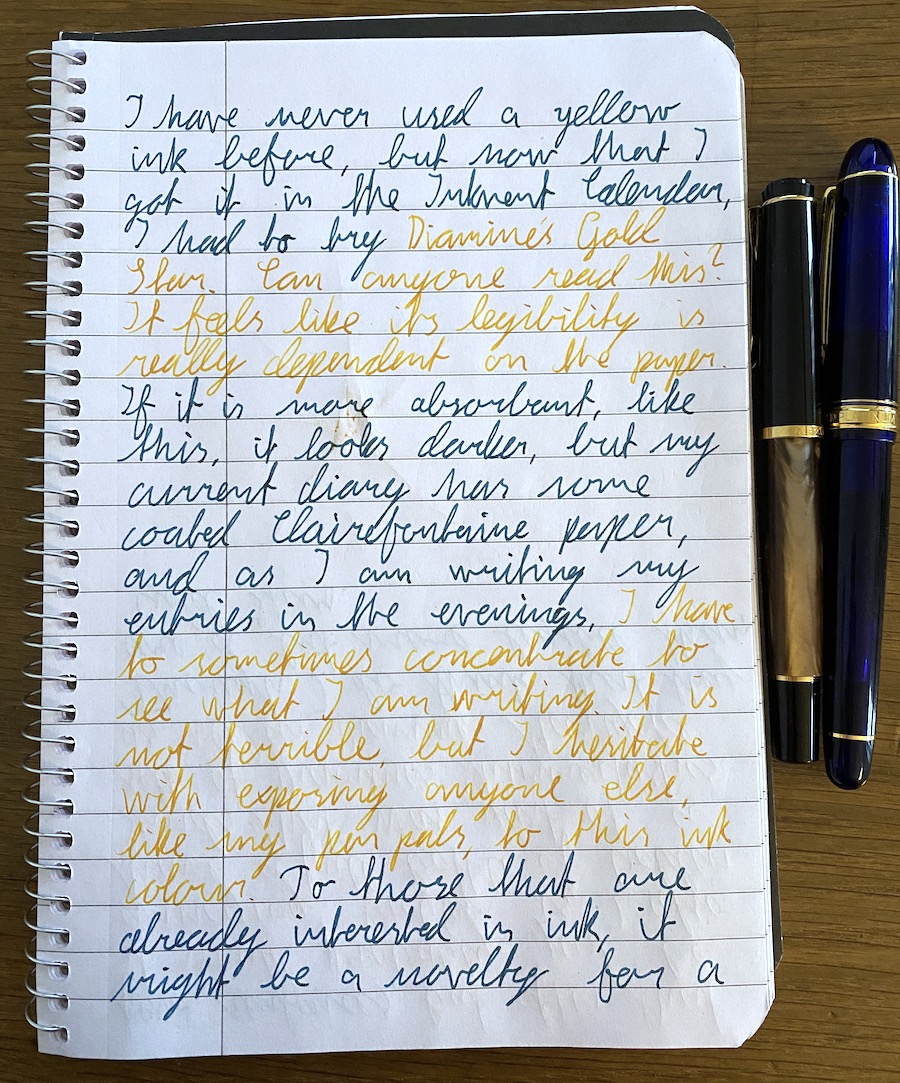 I have never used a yellow
ink before, but now that I
got it in the Inkvent Calendar,
I had to try Diamine's Gold
Star. Can anyone read this?
It feels like its legibility is
really dependent on the paper.
If it is more absorbant, like
this, it looks darker, but my
current diary has some
coated Clairefontaine paper,
and as I am writing my
entries in the evenings, I have
to sometimes concentrate to
see what I am writing. It is
not terrible, but I hesitate
with exposing anyone else,
like my pen pals, to this ink
colour. To those that are
already interested in ink, it
might be a novelty for a